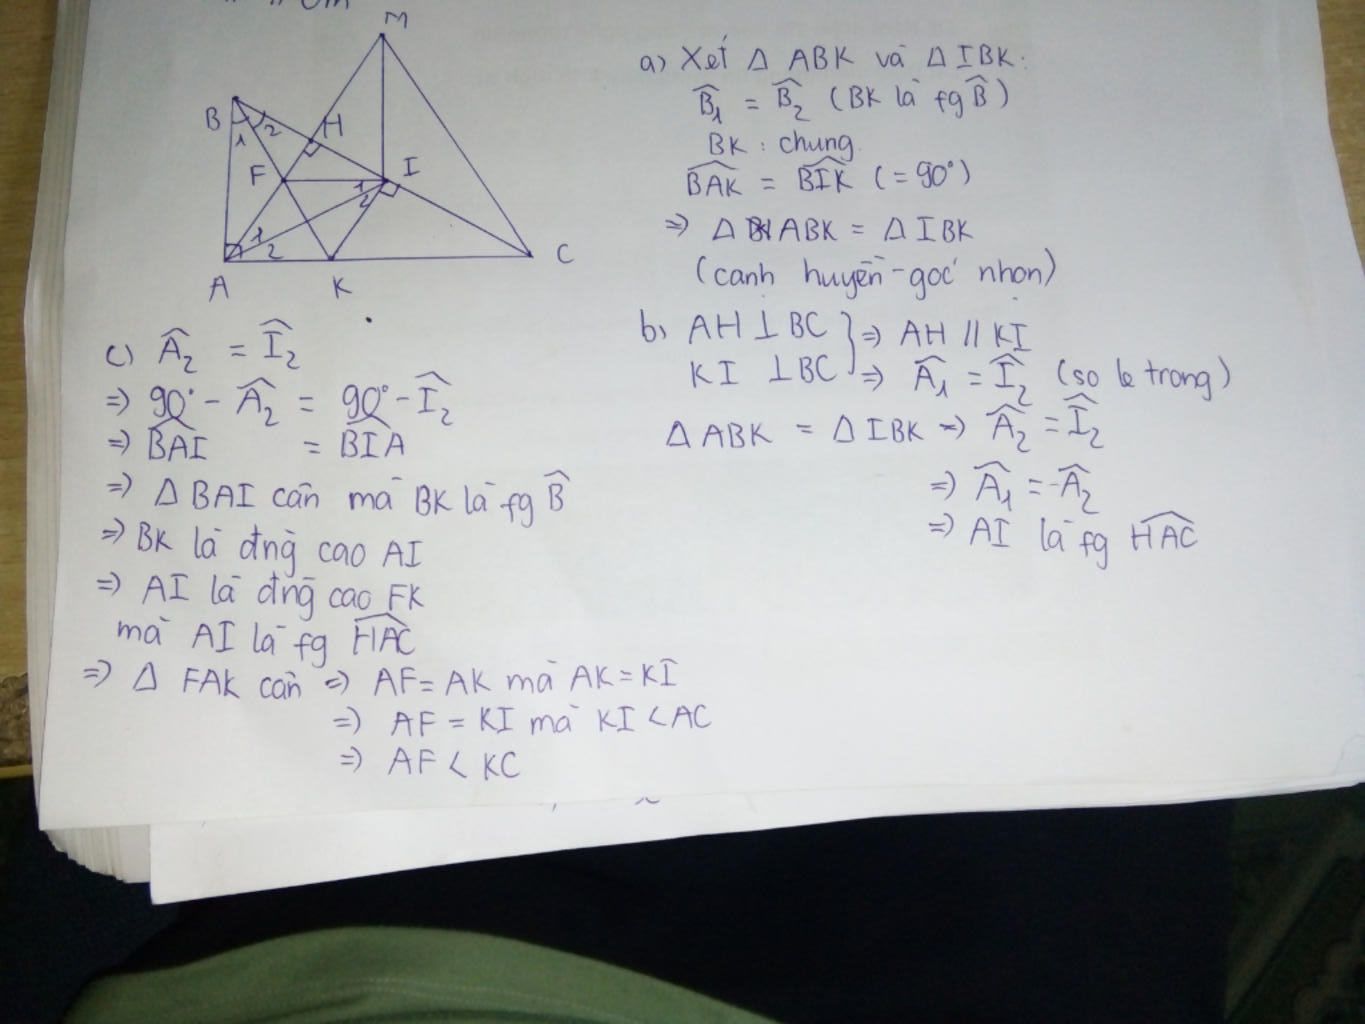 M
B
1
2
H
F
I
1
2
1
2
A
K
C
a) Xét Δ ABK và Δ IBK:
B̂₁ = B̂₂ (BK là fg B̂)
BK : chung
BAK̂ = BIK̂ (= 90°)
=> Δ ABK = Δ IBK
(cạnh huyền-góc nhọn)
b) AH ⊥ BC } => AH // KI
KI ⊥ BC } => Â₁ = Î₂ (so le trong)
Δ ABK = Δ IBK => Â₂ = Î₂
=> Â₁ = Â₂
=> AI là fg HAĈ
c) Â₂ = Î₂
=> 90° - Â₂ = 90° - Î₂
=> BAÎ = BIÂ
=> Δ BAI cân mà BK là fg B̂
=> BK là đng̀ cao AI
=> AI là đng̀ cao FK
mà AI là fg HAĈ
=> Δ FAK cân => AF = AK mà AK = KI
=> AF = KI mà KI < AC
=> AF < KC